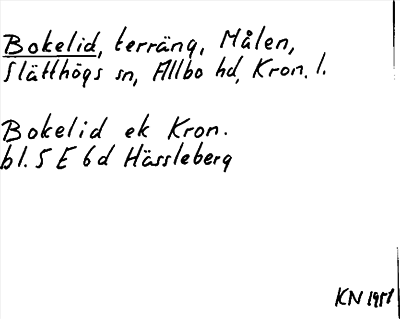 Bokelid, terräng, Målen,
Slätthögs sn, Allbo hd, Kron. l.
Bokelid ek Kron.
bl. 5 E 6d Hässleberg
KN